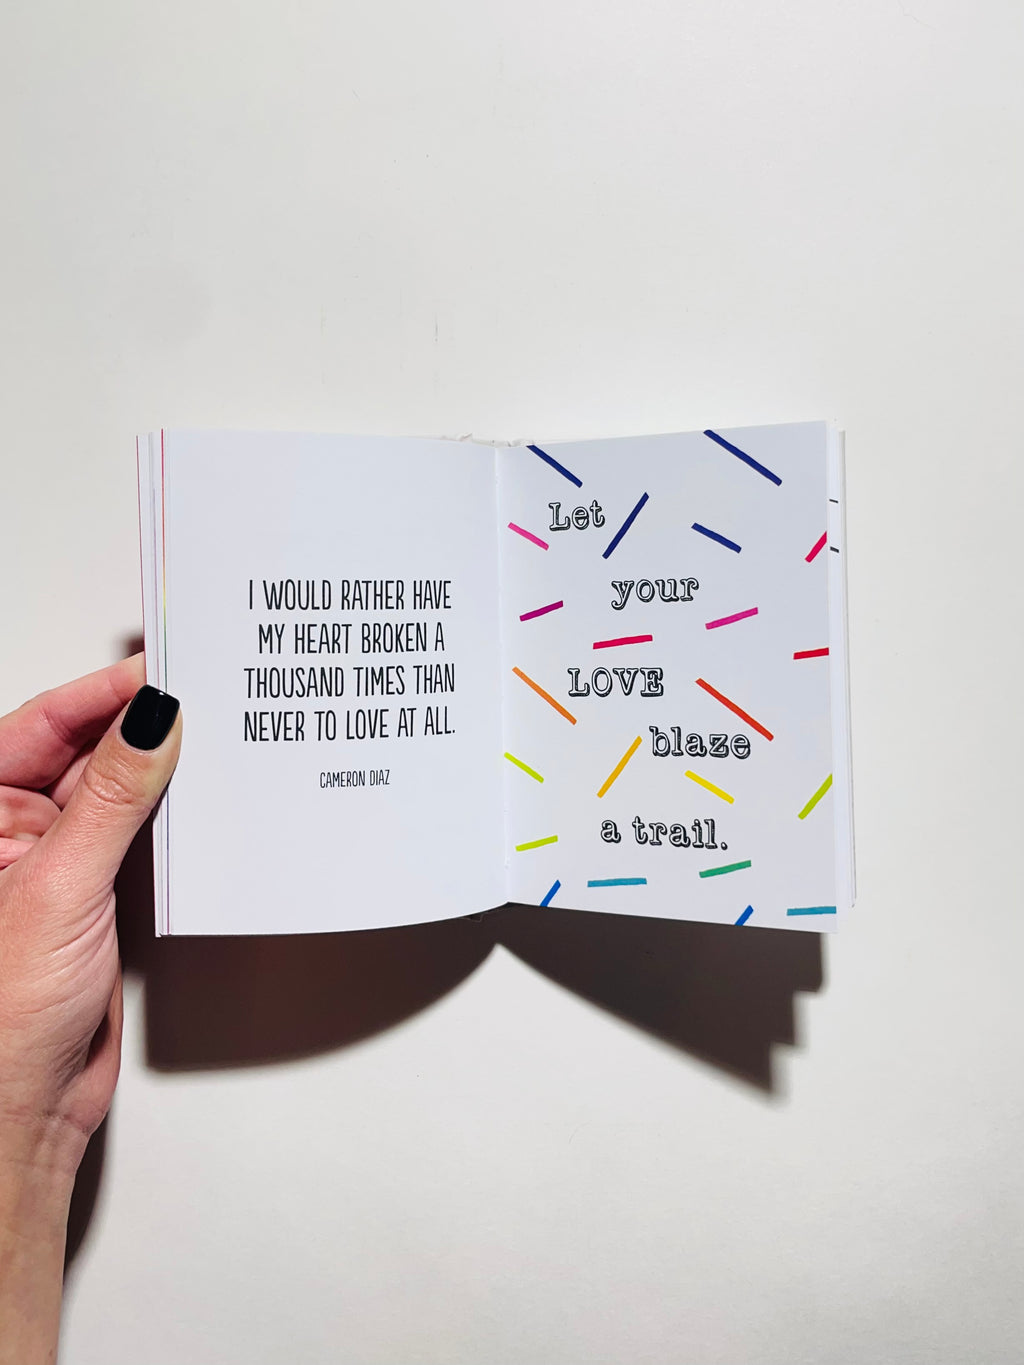 I WOULD RATHER HAVE
MY HEART BROKEN A
THOUSAND TIMES THAN
NEVER TO LOVE AT ALL.
CAMERON DIAZ
Let
your
LOVE
blaze
a trail.